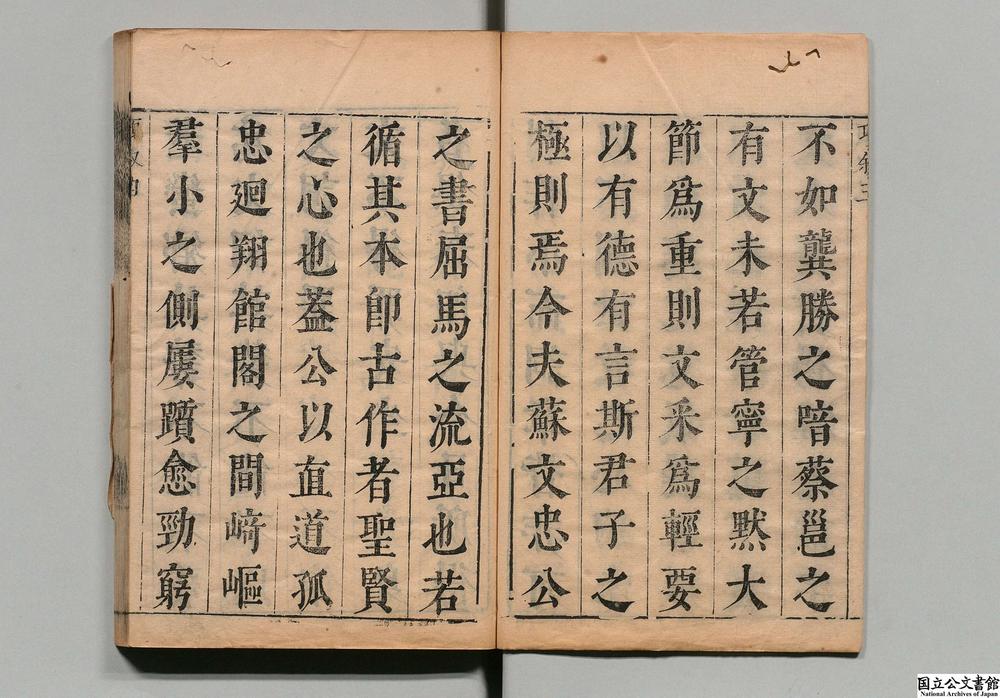 不如龔勝之喑蔡邕之
有文未若管寧之默大
節爲重則文采爲輕要
以有德有言斯君子之
極則焉今夫蘇文忠公
之書屈馬之流亞也若
循其本卽古作者聖賢
之心也蓋公以直道孤
忠廻翔館閣之間﨑嶇
羣小之側屢躓愈勁窮
国立公文書館
National Archives of Japan